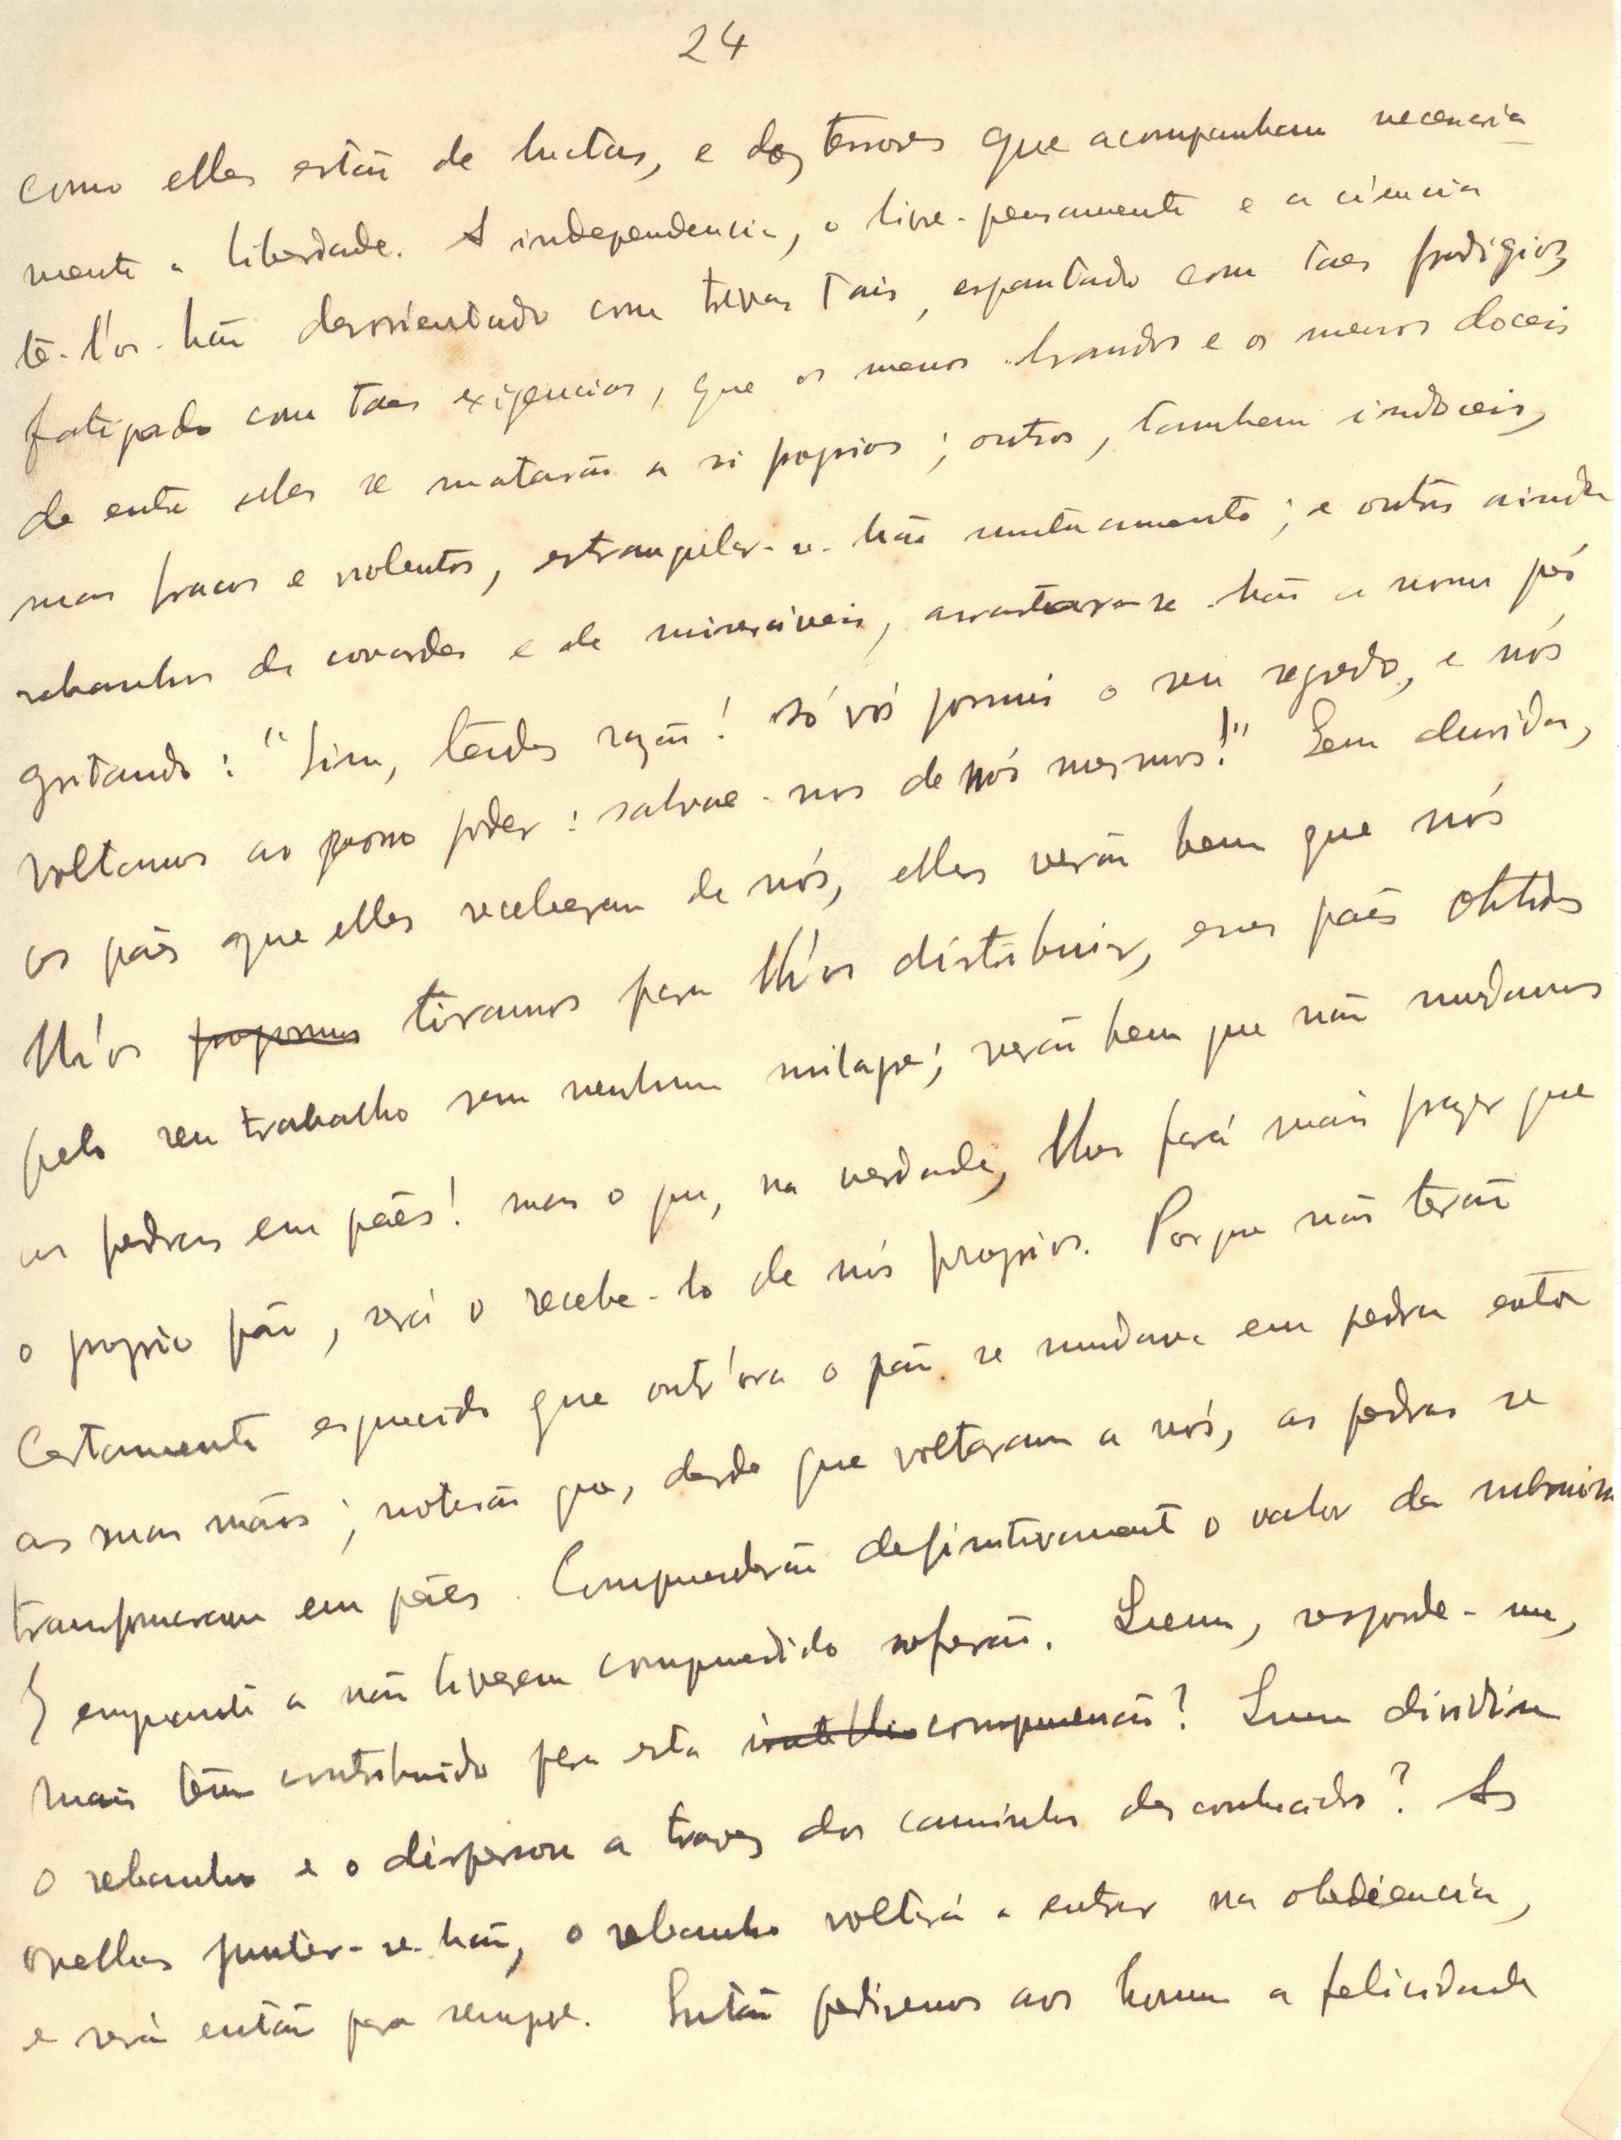 24
como elles estão de luctas, e dos terrores que acompanham necessaria-
mente a liberdade. A independencia, o livre-pensamento e a ciência
tê-l'os-hão desorientado com trevas tais, espantado com taes prodigios,
fatigado com taes exigencias, que os menos brandos e os menos doceis
de entre elles se matarão a si proprios; outros, tambem indoceis,
mas fracos e violentos, estrangular-se-hão mutuamente; e outros ainda
rebanhos de covardes e de miseráveis, arrastar-se-hão a nossos pés
gritando: "Sim, tendes razão! Só vós possuis o seu segredo, e nós
voltamos ao vosso poder: salvae-nos de nós mesmos!" Sem duvida,
os pães que elles receberam de nós, elles verão bem que nós
lh'os propomos tiramos para lh'os distribuir, esses pães obtidos
pelo seu trabalho sem nenhum milagre; verão bem que não mudamos
as pedras em pães! mas o que, na verdade, lhes fará mais prazer que
o proprio pão, será o recebe-lo de nós proprios. Porque não terão
certamente esquecido que outr'ora o pão se mudava em pedra entre
as suas mãos; notarão que, desde que voltaram a nós, as pedras se
transformaram em pães. Compreenderão definitivamente o valor da submissão
E emquanto a não tiverem compreendido sofrerão. Quem, responde-me,
mais tem contribuido para esta compreensão? Quem dividiu
o rebanho e o dispersou a travez dos caminhos desconhecidos? As
ovelhas juntar-se-hão, o rebanho voltará a entrar na obediencia,
e será então para sempre. Então pediremos aos homens a felicidade